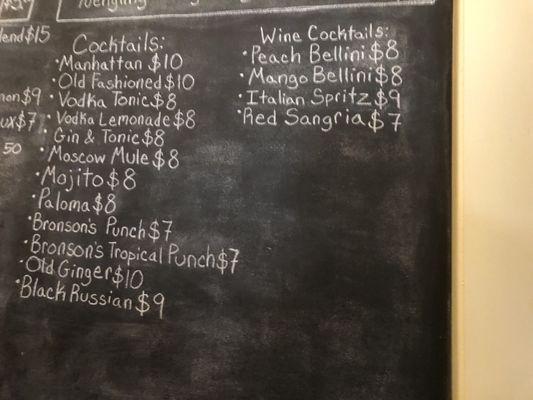 $15
Cocktails:
• Manhattan $10
• Old Fashioned $10
• Vodka Tonic $8
• Vodka Lemonade $8
• Gin & Tonic $8
• Moscow Mule $8
• Mojito $8
• Paloma $8
• Bronson's Punch $7
• Bronson's Tropical Punch $7
• Old Ginger $10
• Black Russian $9
$9
$7
50
Wine Cocktails:
• Peach Bellini $8
• Mango Bellini $8
• Italian Spritz $9
• Red Sangria $7